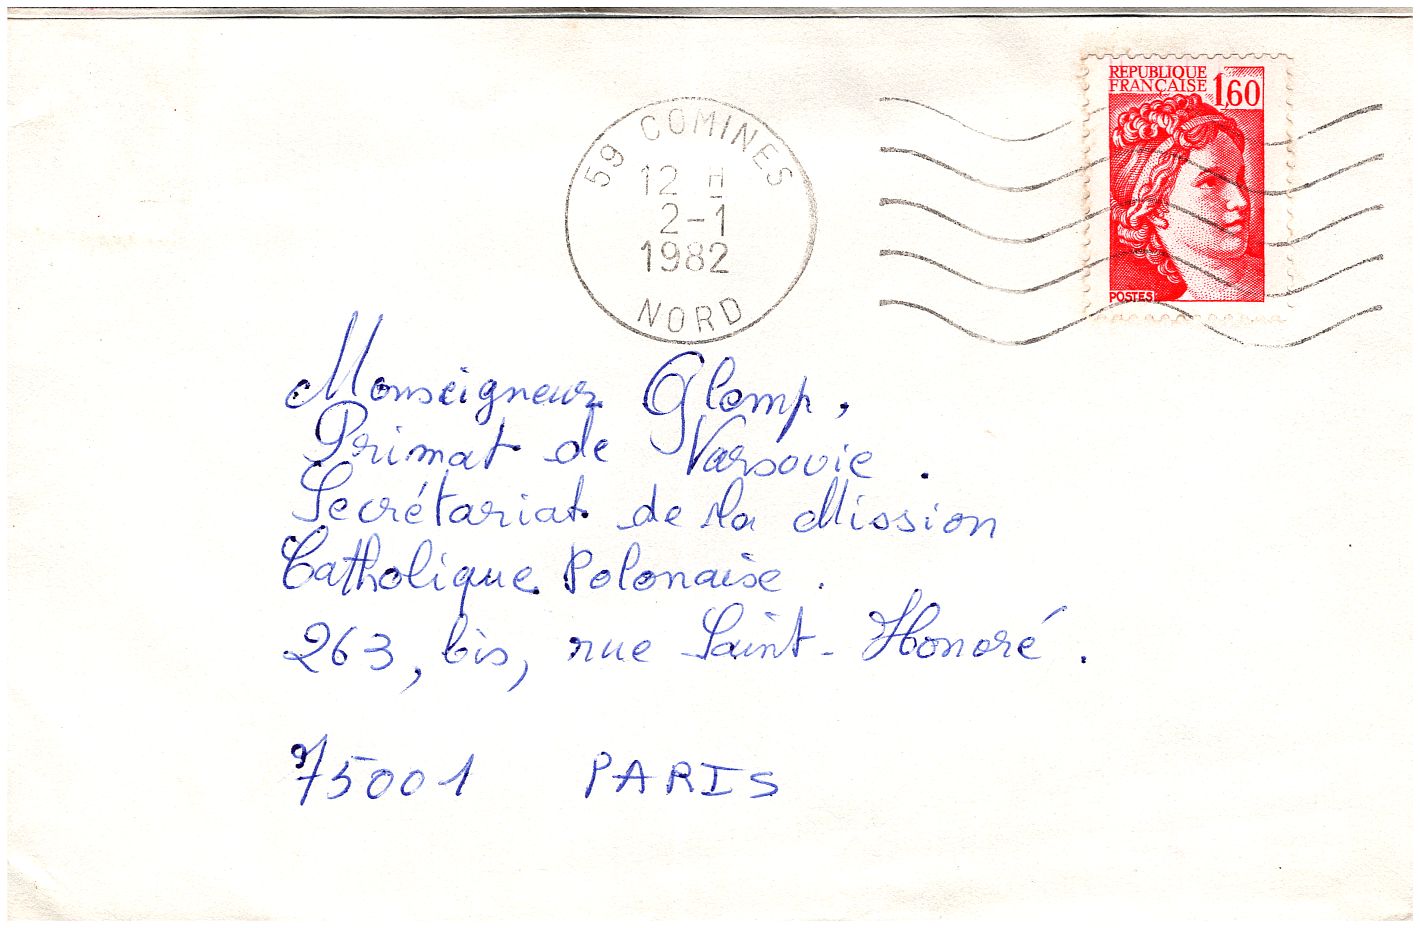 REPUBLIQUE
FRANÇAISE 1,60
POSTES
59 COMINES
12 H
2-1
1982
NORD
Monseigneur Glemp,
Primat de Varsovie.
Secrétariat de la Mission
Catholique Polonaise.
263, bis, rue Saint-Honoré.
75001 PARIS